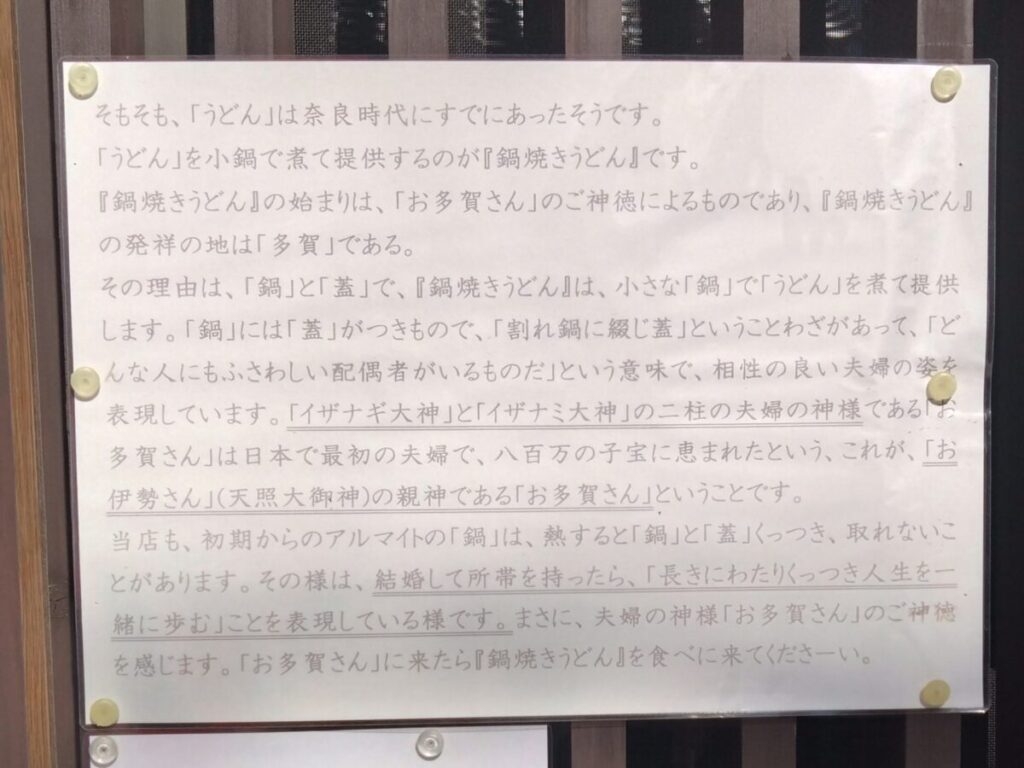 そもそも、「うどん」は奈良時代にすでにあったそうです。
「うどん」を小鍋で煮て提供するのが『鍋焼きうどん』です。
『鍋焼きうどん』の始まりは、「お多賀さん」のご神徳によるものであり、『鍋焼きうどん』
の発祥の地は「多賀」である。
その理由は、「鍋」と「蓋」で、『鍋焼きうどん』は、小さな「鍋」で「うどん」を煮て提供
します。「鍋」には「蓋」がつきもので、「割れ鍋に綴じ蓋」ということわざがあって、「ど
んな人にもふさわしい配偶者がいるものだ」という意味で、相性の良い夫婦の姿を
表現しています。「イザナギ大神」と「イザナミ大神」の二柱の夫婦の神様である「お
多賀さん」は日本で最初の夫婦で、八百万の子宝に恵まれたという、これが、「お
伊勢さん」(天照大御神)の親神である「お多賀さん」ということです。
当店も、初期からのアルマイトの「鍋」は、熱すると「鍋」と「蓋」くっつき、取れないこ
とがあります。その様は、結婚して所帯を持ったら、「長きにわたりくっつき人生を一
緒に歩む」ことを表現している様です。まさに、夫婦の神様「お多賀さん」のご神徳
を感じます。「お多賀さん」に来たら『鍋焼きうどん』を食べに来てくださーい。